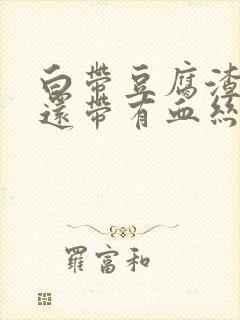 白帶豆腐渣
還帶有血絲
羅富和